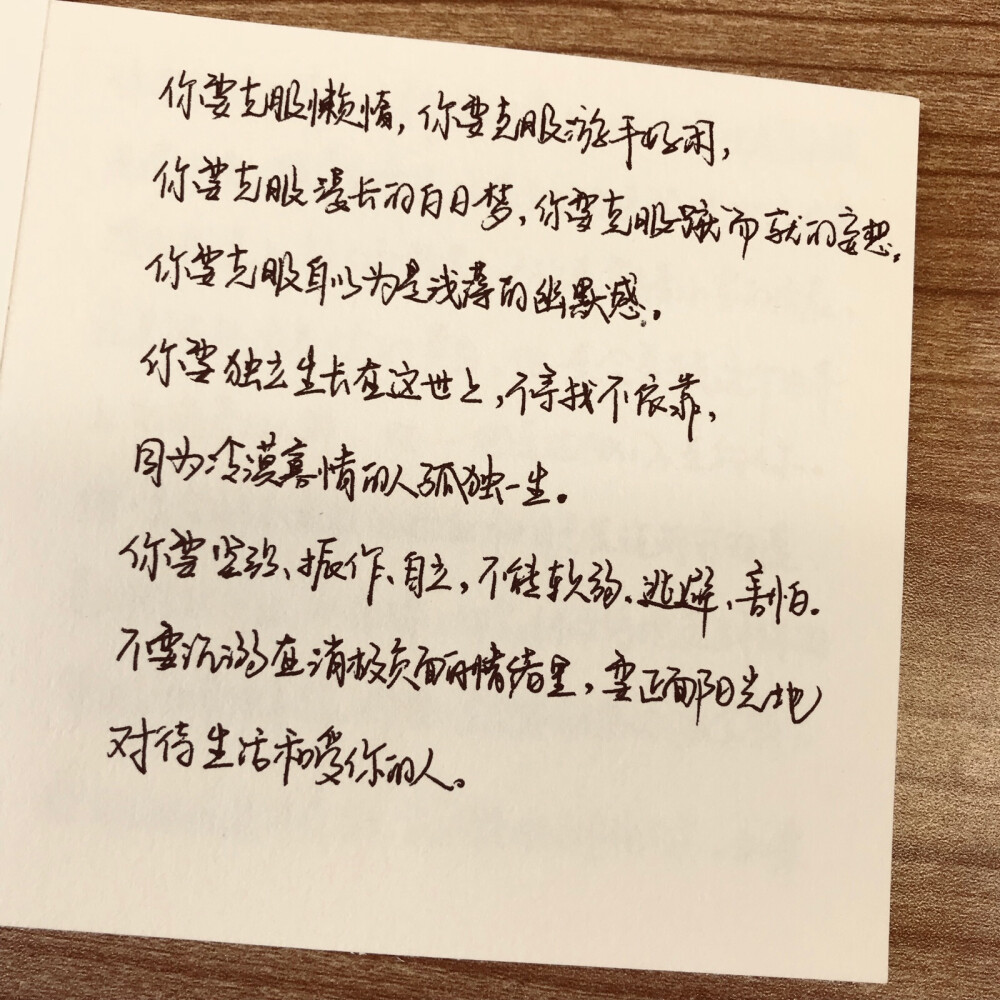 你要克服懒惰，你要克服游手好闲，
你要克服漫长的白日梦，你要克服蹴而就的妄想，
你要克服自以为是浅薄的幽默感。
你要独立生长在这世上，不寻找不依靠，
因为冷漠寡情的人孤独一生。
你要坚强、振作、自立，不能软弱、逃避、害怕。
不要沉溺在消极负面的情绪里，要正面阳光地
对待生活和爱你的人。